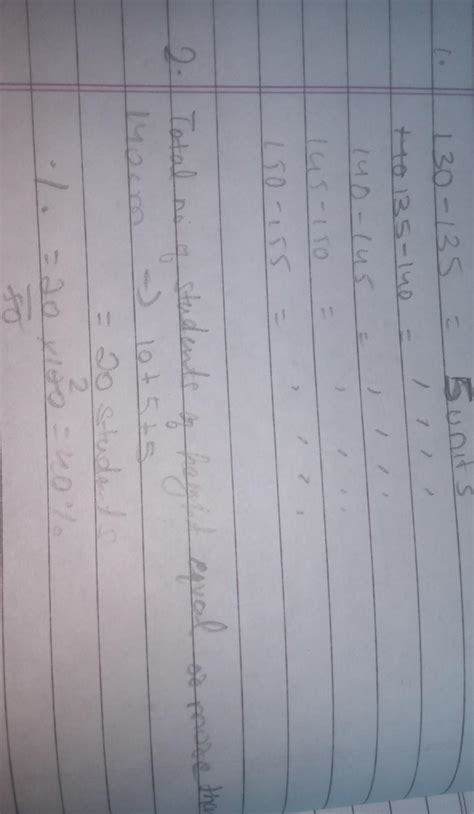 1. 130-135 = 5 units
135-140 = , , , ,
140-145 = , , , ,
145-150 = , , , .
150-155 = , , , .
2. Total no of students of height equal or more than
140cm -> 10+5+5
= 20 students
% = 20/50 x 100 2 = 40%